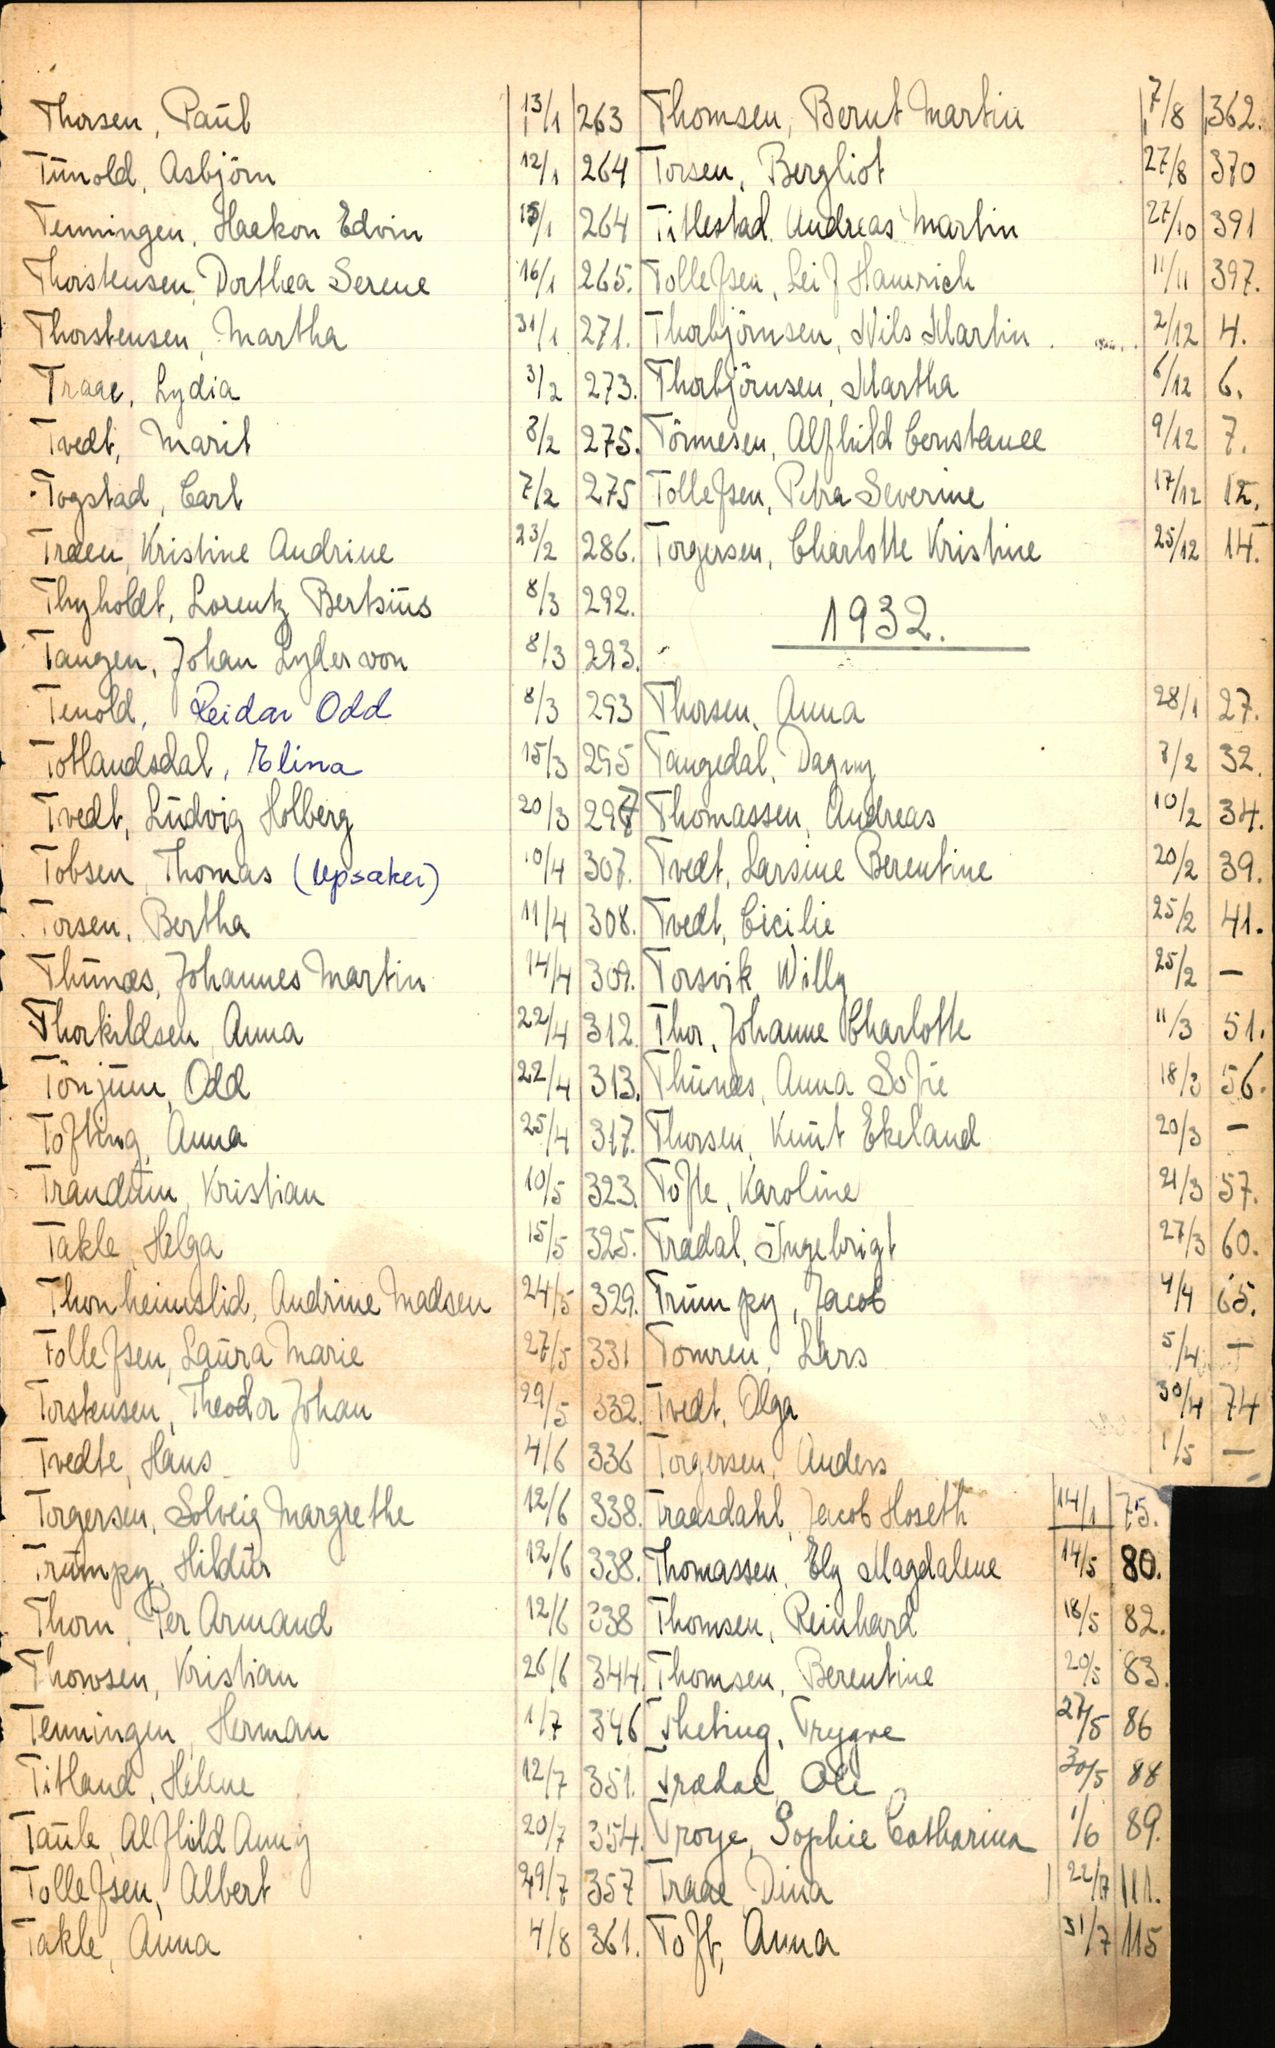 Thorsen, Paul 13/1 263
Tunold, Asbjörn 12/1 264
Tenningen, Haakon Edvin 15/1 264
Thorstensen, Dorthea Serene 16/1 265.
Thorstensen, Martha 31/1 271.
Traae, Lydia 3/2 273.
Tvedt, Marit 8/2 275.
Togstad, Carl 7/2 275
Traen, Kristine Andrine 23/2 286.
Thyholdt, Lorentz Bertsius 8/3 292.
Tangen, Johan Lyder von 8/3 293.
Tenold, Reidar Odd 8/3 293
Totlandsdal, Elina 15/3 295
Tvedt, Ludvig Holberg 20/3 297
Tobsen, Thomas (Upsaker) 10/4 307.
Torsen, Bertha 11/4 308.
Thunæs, Johannes Martin 14/4 309.
Thorkildsen, Anna 22/4 312.
Tönjum, Odd 22/4 313.
Tofting, Anna 25/4 317.
Trandum, Kristian 10/5 323.
Takle, Helga 15/5 325.
Thonheimslid, Andrine Madsen 24/5 329.
Tollefsen, Laura Marie 27/5 331
Torstensen, Theodor Johan 29/5 332.
Tvedte, Hans 4/6 336
Torgersen, Solveig Margrethe 12/6 338.
Trumpy, Hildur 12/6 338.
Thorn, Per Armand 12/6 338
Thowsen, Kristian 26/6 344
Tenningen, Herman 1/7 346
Titland, Helene 12/7 351.
Taule, Alfhild Anny 20/7 354.
Tollefsen, Albert 29/7 357
Takle, Anna 4/8 361.
Thomsen, Bernt Martin 7/8 362.
Torsen, Bergliot 27/8 370
Titlestad, Andreas Martin 27/10 391
Tollefsen, Leif Hamrich 11/11 397.
Thorbjörnsen, Nils Martin 2/12 4.
Thorbjörnsen, Martha 6/12 6.
Tönnesen, Alfhild Constance 9/12 7.
Tollefsen, Petra Severine 17/12 12.
Torgersen, Charlotte Kristine 25/12 14.
1932.
Thorsen, Anna 28/1 27.
Tangedal, Dagny 7/2 32.
Thomassen, Andreas 10/2 34.
Tvedt, Larsine Berentine 20/2 39.
Tvedt, Cicilie 25/2 41.
Torsvik, Willy 25/2 —
Thor, Johanne Charlotte 11/3 51.
Thunæs, Anna Sofie 18/3 56.
Thorsen, Knut Ekeland 20/3 —
Tofte, Karoline 21/3 57.
Trædal, Ingebrigt 27/3 60.
Trumpy, Jacob 4/4 65.
Tomren, Lars 5/4 —
Tvedt, Olga 30/4 74
Torgersen, Anders 1/5 —
Traasdahl, Jacob Hoseth 14/1 75.
Thomassen, Ely Magdalene 14/5 80.
Thomsen, Reinhard 18/5 82.
Thomsen, Berentine 20/5 83.
Theting, Trygve 27/5 86
Trædal, Ole 30/5 88
Troye, Sophie Catharina 1/6 89.
Traae, Dina 22/7 111.
Toft, Anna 31/7 115